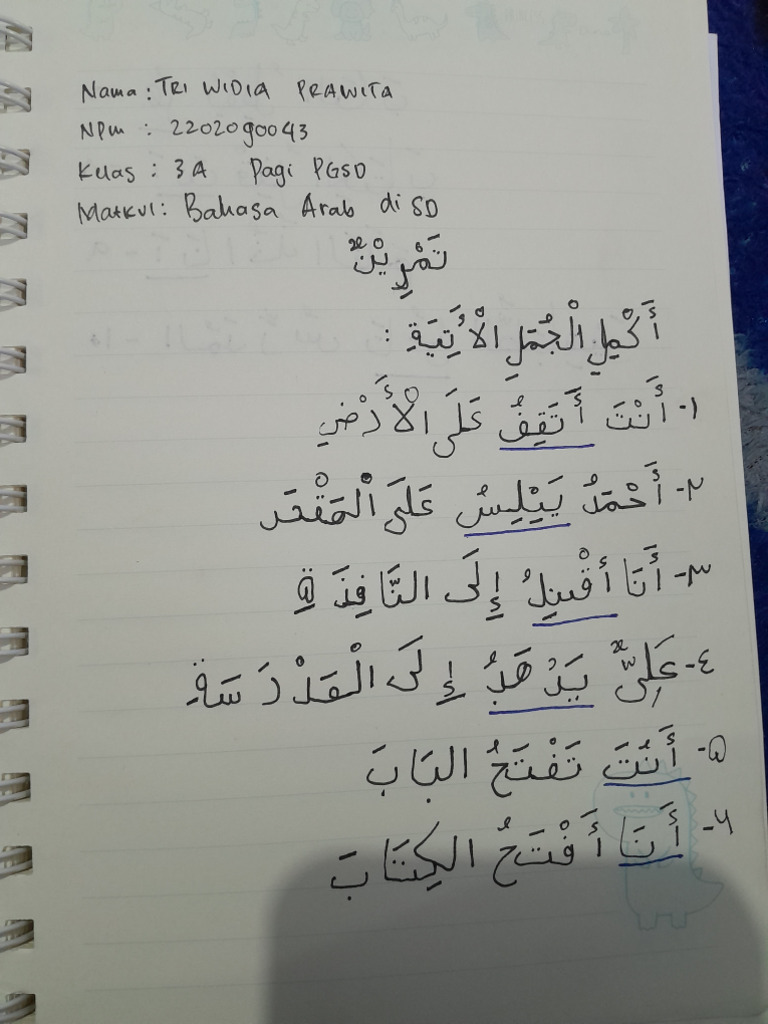 Nama : TRI WIDIA PRAWITA
NPM : 2202090043
Kelas : 3A Pagi PGSD
Matkul : Bahasa Arab di SD
تَمْرِيْنٌ
أَكْمِلِ الْجُمَلِ الْأُتِيَةِ :
١- أَنْتَ أَتَقِفُ عَلَى الْأَرْضِ
٢- أَحْمَدُ يَيْلِسُ عَلَى الْمَقْعَد
٣- أَنَا أقْبِلُ إِلَى النَّافِذَةِ
٤- عَلِيٌّ يَدْهَبُ إِلَى الْمَدْرَسَةِ
٥- أَنْتَ تَفْتَحُ البَابَ
٦- أَنَا أَفْتَحُ الكِتَابَ